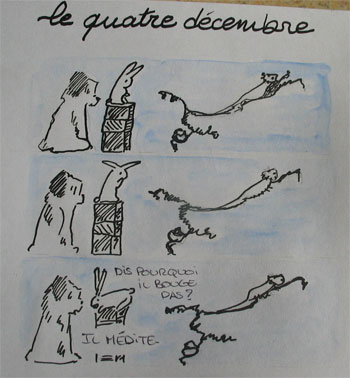 le quatre décembre
DIS POURQUOI
IL BOUGE
PAS?
IL MÉDITE